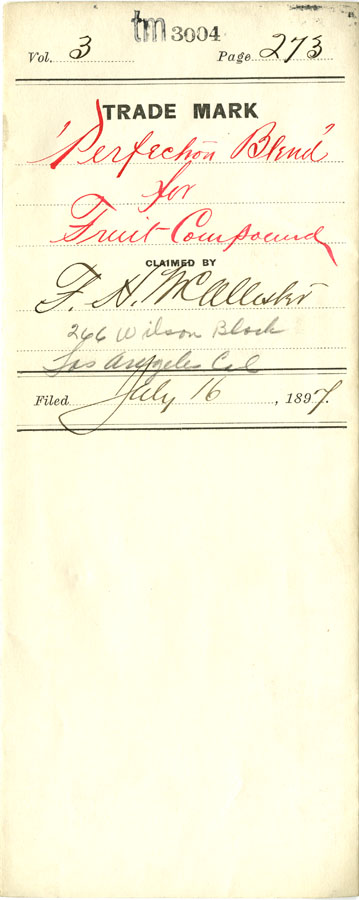 tm 3004
Vol. 3 Page 273
TRADE MARK
"Perfection Blend"
for
Fruit Compound
CLAIMED BY
F. H. McAllister
266 Wilson Block
Los Angeles Cal
Filed July 16, 1897.